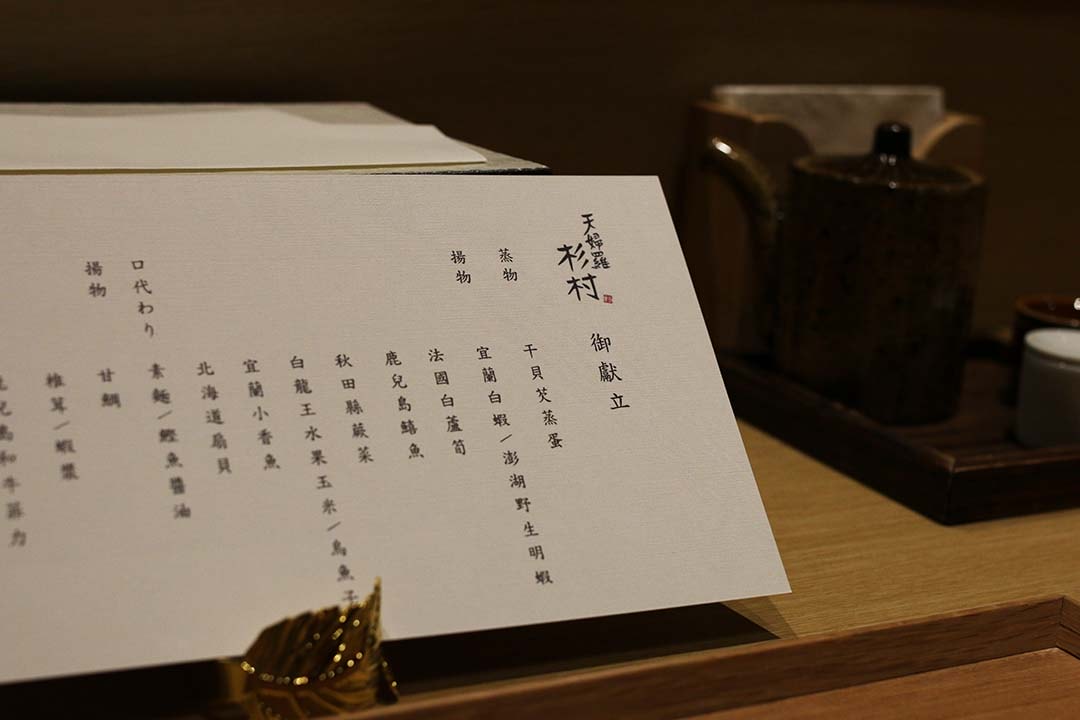 天婦羅
杉村
御獻立
蒸物
干貝芡蒸蛋
揚物
宜蘭白蝦/澎湖野生明蝦
法國白蘆筍
鹿兒島鱚魚
秋田縣蕨菜
白龍王水果玉米/烏魚子
宜蘭小香魚
北海道扇貝
口代わり
素麵/鰹魚醬油
揚物
甘鯛
椎茸/蝦漿
鹿兒島和牛菲力